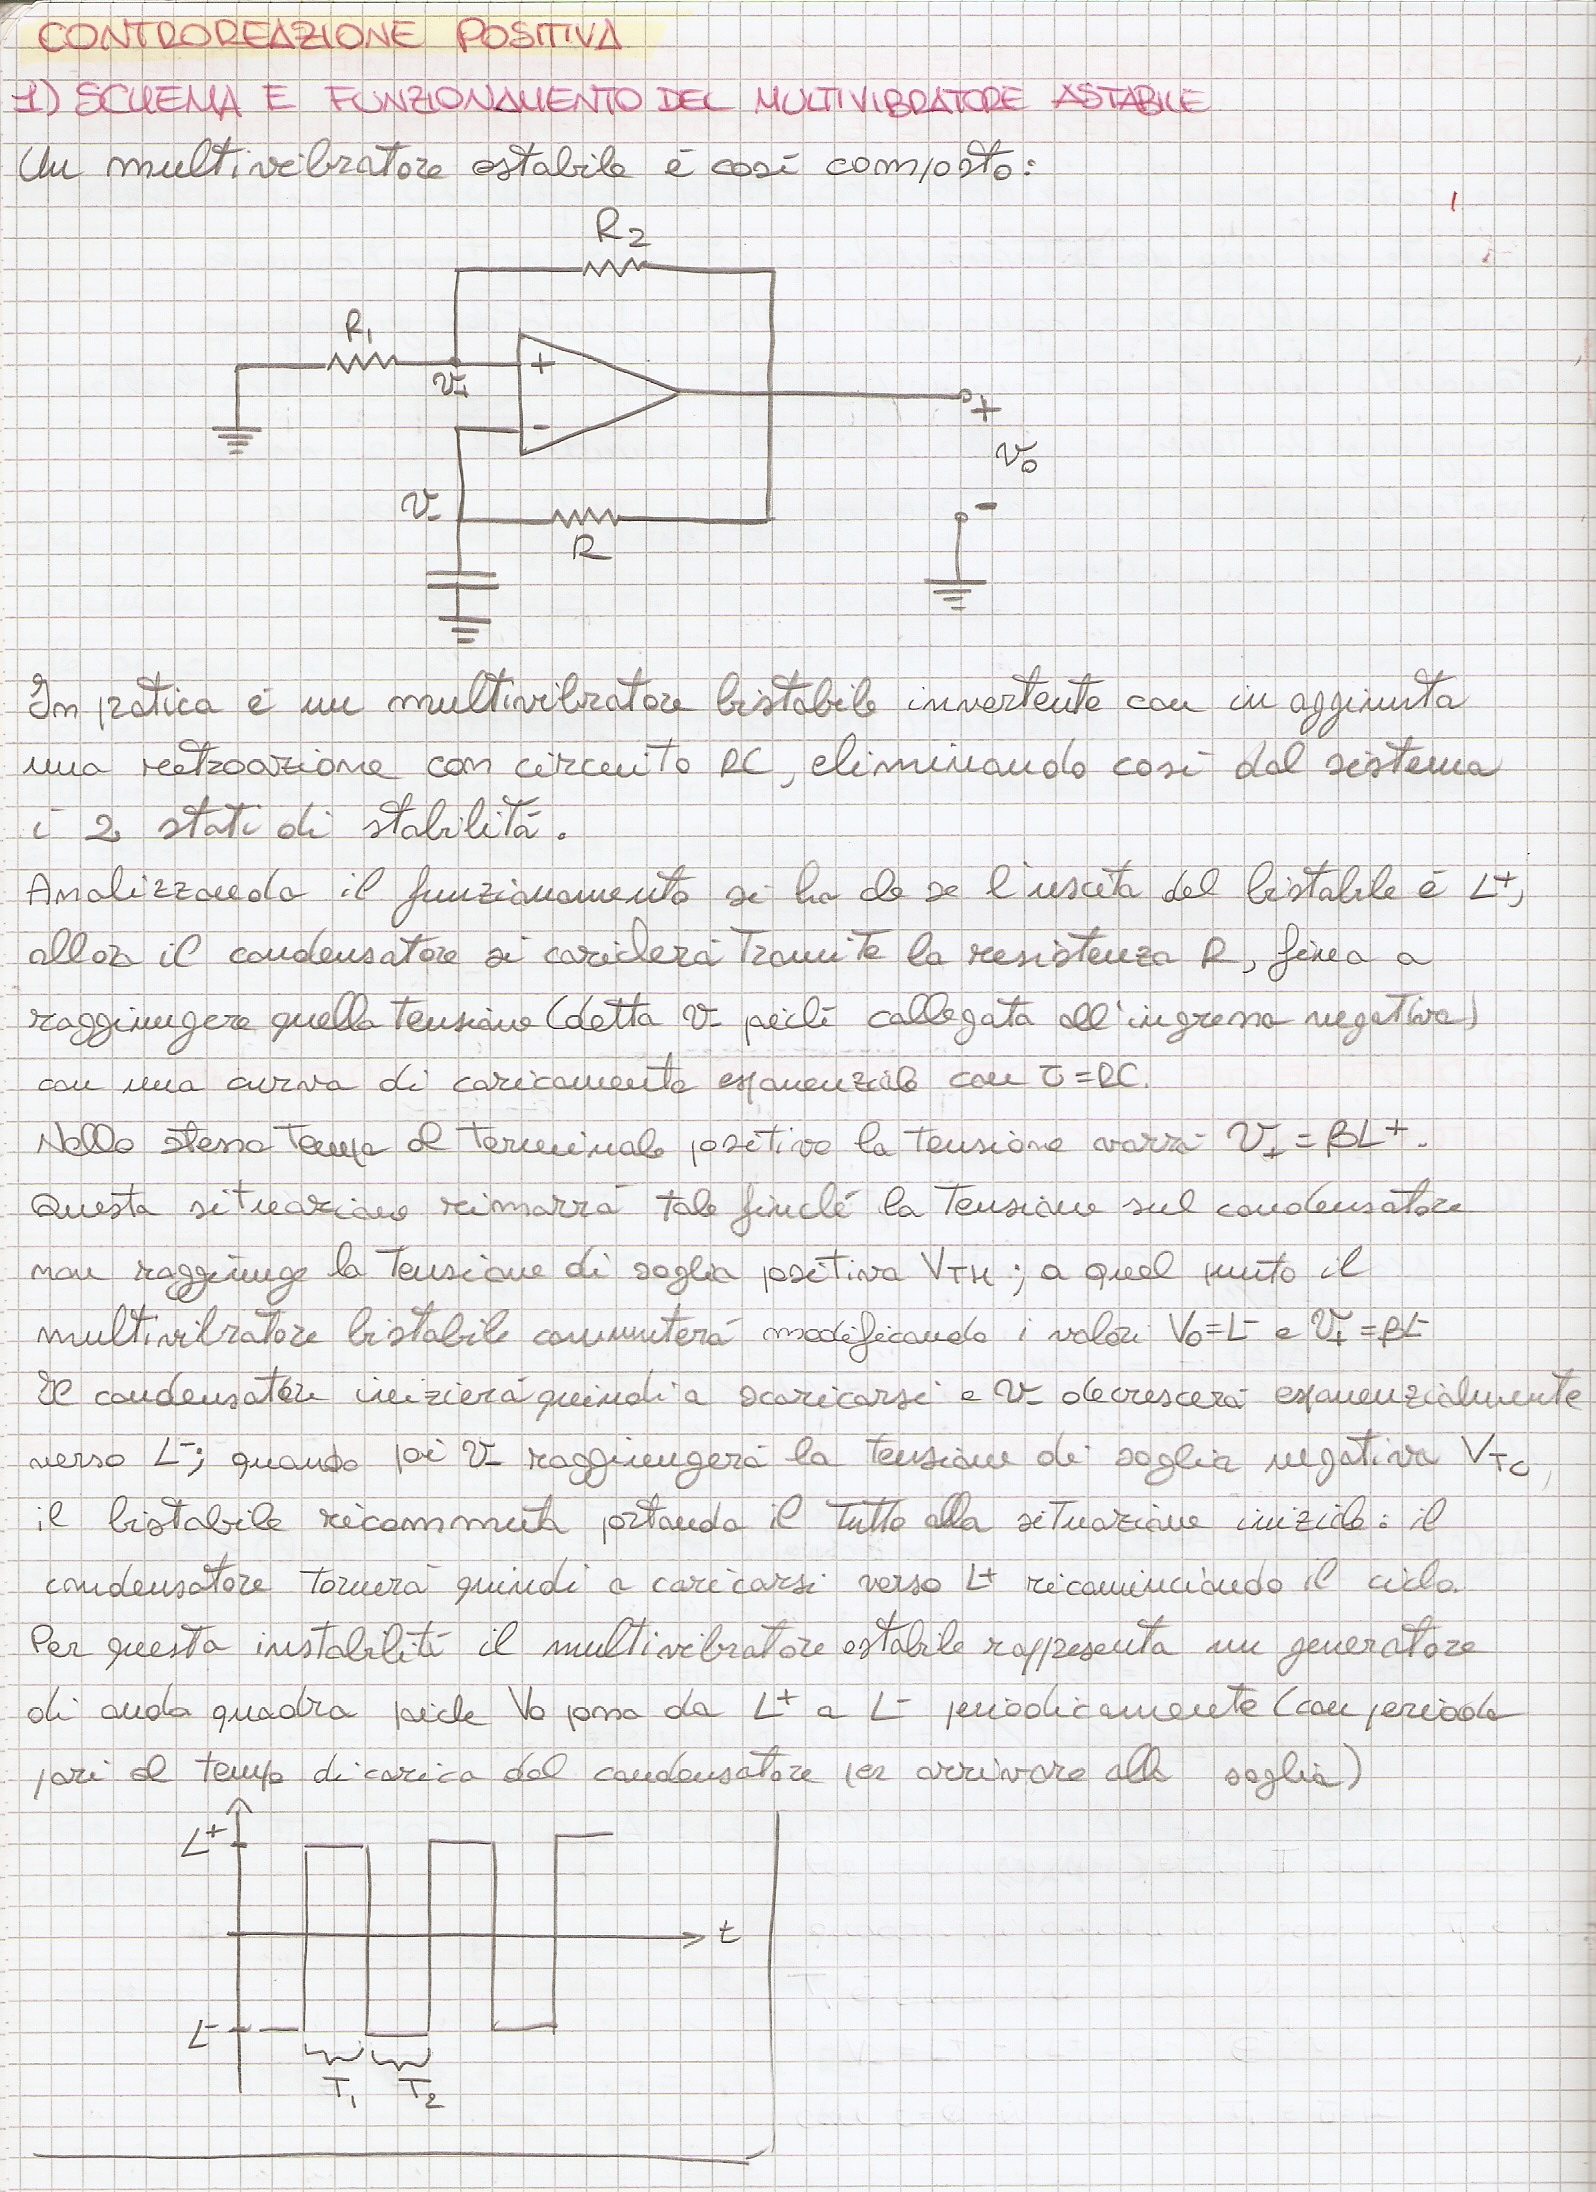 CONTROREAZIONE POSITIVA
1) SCHEMA E FUNZIONAMENTO DEL MULTIVIBRATORE ASTABILE
Un multivibratore astabile è così composto:
R2
R1
+
v+
-
+
vo
v-
-
R
In pratica è un multivibratore bistabile invertente con in aggiunta
una retroazione con circuito RC, eliminando così dal sistema
i 2 stati di stabilità.
Analizzando il funzionamento si ha che se l'uscita del bistabile è L+,
allora il condensatore si caricherà tramite la resistenza R, fino a
raggiungere quella tensione (detta v- perché collegata all'ingresso negativo)
con una curva di caricamento esponenziale con τ=RC.
Nello stesso tempo al terminale positivo la tensione varrà v+ = βL+.
Questa situazione rimarrà tale finché la tensione sul condensatore
non raggiunge la tensione di soglia positiva VTH; a quel punto il
multivibratore bistabile commuterà modificando i valori Vo=L- e v+=βL-
Il condensatore inizierà quindi a scaricarsi e v- decrescerà esponenzialmente
verso L-; quando poi v- raggiungerà la tensione di soglia negativa VTL,
il bistabile ricommuta portando il tutto alla situazione iniziale: il
condensatore tornerà quindi a caricarsi verso L+ ricominciando il ciclo.
Per questa instabilità il multivibratore astabile rappresenta un generatore
di onda quadra perché Vo passa da L+ a L- periodicamente (con periodo
pari al tempo di carica del condensatore per arrivare alla soglia)
L+
t
L-
T1 T2